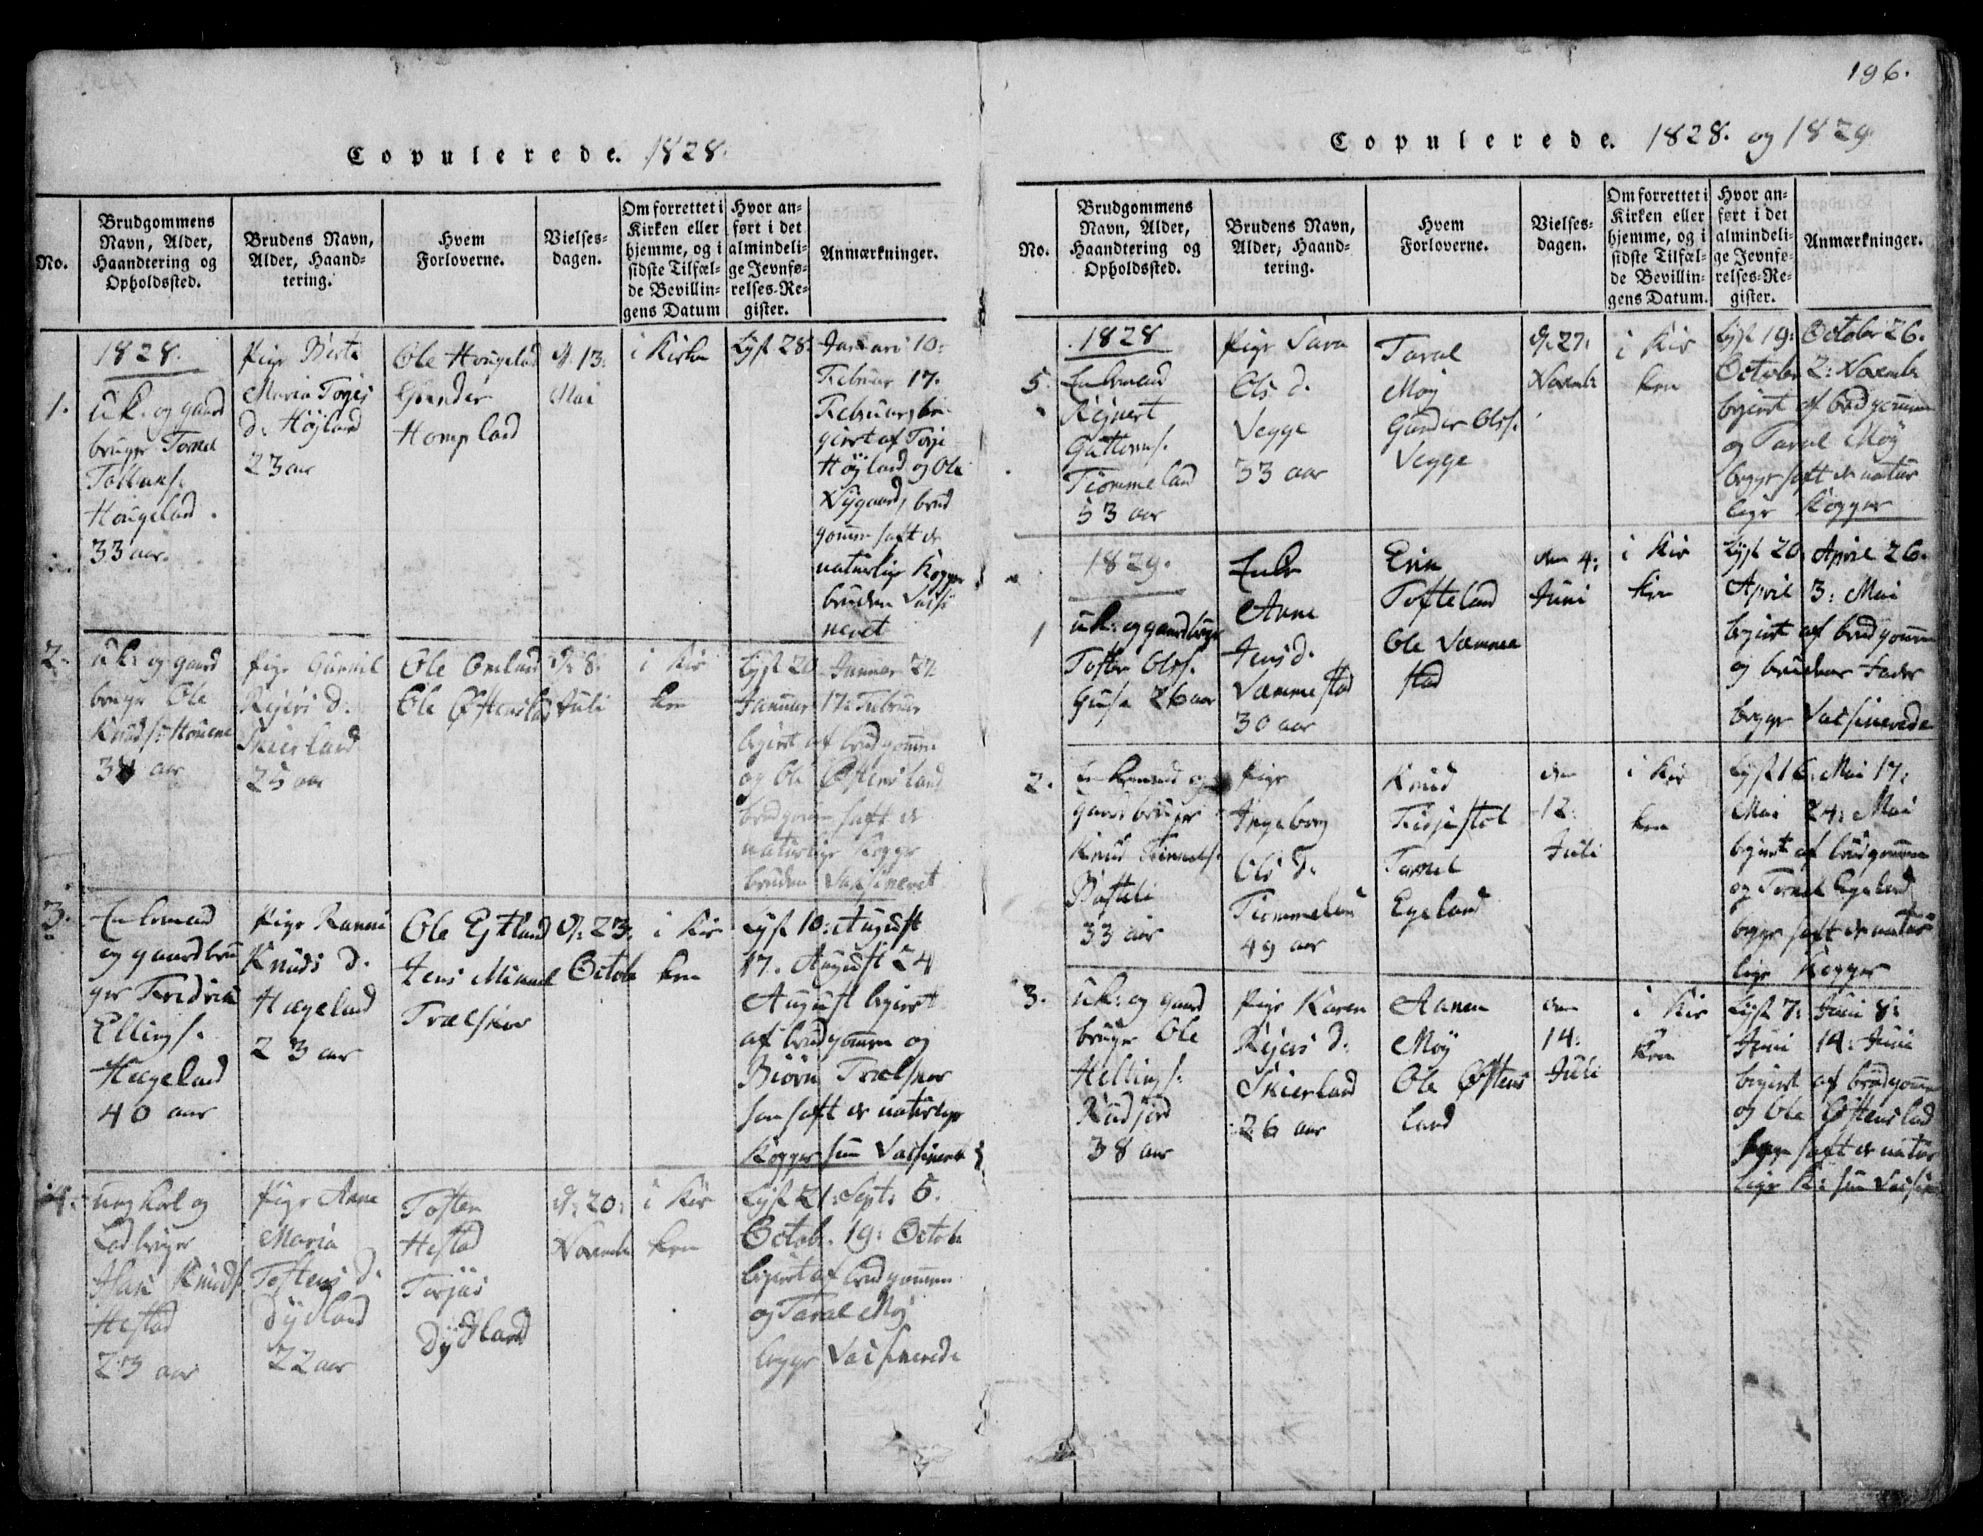 196.
Copulerede. 1828.
No.
Brudgommens
Navn, Alder,
Haandtering og
Opholdssted.
Brudens Navn,
Alder, Haand-
tering.
Hvem
Forloverne.
Vielses-
dagen.
Om forrettet i
Kirken eller
hjemme, og i
sidste Tilfæl-
de Bevillin-
gens Datum
Hvor an-
ført i det
almindeli-
ge Jevnfø-
relses-Re-
gister.
Anmærkninger.
1.
1828.
u.k. og gaard
bruger
Hougeland.
33 aar.
Pige Berte
Maria
d. Høyland
23 aar
Ole Hougeland
Gunder
Homeland
d. 13:
Mai
i Kirken
Lyst 28: Januari 10:
Februar 17.
Februar, be
giert af Torje
Høyland og Ole
Nygaard, brud
gomm haft de
naturlige Kopper
bruden Vaksi
neret
2.
u.k: og gaard
bruger Ole
Knuds:
aar
Pige
d.
Skierland
25 aar
Ole Omland
Ole Østensland
d. 8.
Juli
i Kir
ken
Lyst 20 Januar 27
Januar 17: Februar
begiert af brudgomm
og Ole Østensland
brudgomm haft de
naturlige Kopper
bruden Vaksineret
3.
Enkemand
og gaardbru
ger Fredrik
Ellings.
Hægeland
40 aar
Pige Ranni
Knuds d.
Hægeland
23 aar
Ole
Jens
Trælsker
d: 23:
Octob
i Kir
ken
Lyst 10: August
17. August 24
August begiert
af brudgomm og
Biørn Trælsker
han haft de naturlige
Kopper hun Vaksineret
4.
ung karl og
Knuds.
Hestad
23 aar
Pige Anne
Maria
Tostens d.
Dydland
22 aar
Tosten
Hestad
Torjus
Dydland
d: 20:
Novemb
i Kir
ken
Lyst 21: Sept: 5.
Octob. 19: Octob
begiert af brudgommen
og Taral Møy
begge Vaksinerede
Copulerede. 1828. og 1829
No.
Brudgommens
Navn, Alder,
Haandtering og
Opholdssted.
Brudens Navn,
Alder, Haand-
tering.
Hvem
Forloverne.
Vielses-
dagen.
Om forrettet i
Kirken eller
hjemme, og i
sidste Tilfæl-
de Bevillin-
gens Datum.
Hvor an-
ført i det
almindeli-
ge Jevnfø-
relses-Re-
gister.
Anmærkninger.
5.
1828
Enkemand
Rejnert
Guttorms.
Tiommeland
53 aar
Pige Sara
Ols d.
Vegge
33 aar
Taral
Møy
Gunder Olss.
Vegge
d: 27:
Novemb
i Kir
ken
Lyst 19: October 26.
October 2: Novemb
begiert af brudgomm
og Taral Møy
begge haft de natur
lige Kopper
1
1829.
u.k: og gaardbruger
Tosten Olss.
26 aar
Enke
Anne
Jens d.
Væmmestad
30 aar
Erik
Tofteland
Ole Væmme
stad
den 4:
Juni
i Kir
ken
Lyst 20: April 26.
April 3: Mai
begiert af brudgomm
og brudens Fader
begge Vaksinerede
2.
Enkemand og
gaardbruger
Knud
33 aar
Pige
Ingeborg
Ols d.
Tiommeland
49 aar
Knud
Egeland
den
12:
Juli
i Kir
ken
Lyst 16: Mai 17:
Mai 24: Mai
begiert af brudgomm
og Egeland
begge haft de natur
lige Kopper
3.
u.k: og gaard
bruger Ole
Hellings.
38 aar
Pige Karen
Rejers d.
Skierland
26 aar
Aanen
Møy
Ole Østens
land
den
14:
Juli
i Kir
ken
Lyst 7: Juni 8:
Juni 14: Juni
begiert af brudgomm
og Ole Østensland
begge haft de natur
lige K: